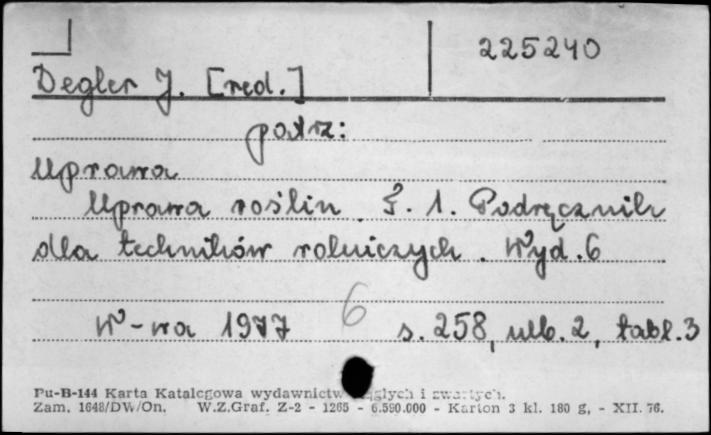 225240
Degler J. [red.]
patrz:
Uprawa
Uprawa roślin. T. 1. Podręcznik
dla techników rolniczych. Wyd. 6
6
W-wa 1977 s. 258, nlb. 2, tabl. 3
Pu-B-144 Karta Katalogowa wydawnictw ciągłych i zwartych.
Zam. 1648/DW/On. W.Z.Graf. Z-2 - 1265 - 6.590.000 - Karton 3 kl. 180 g, - XII. 76.